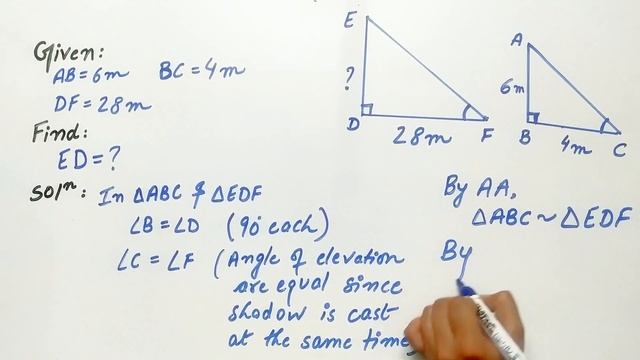 Given:
AB = 6m BC = 4m
DF = 28m
Find:
ED = ?
Solⁿ: In △ABC & △EDF
∠B = ∠D (90° each)
∠C = ∠F (Angle of elevation
are equal since
shadow is cast
at the same time
E
?
D
28m
F
A
6m
B
4m
C
By AA,
△ABC ~ △EDF
By